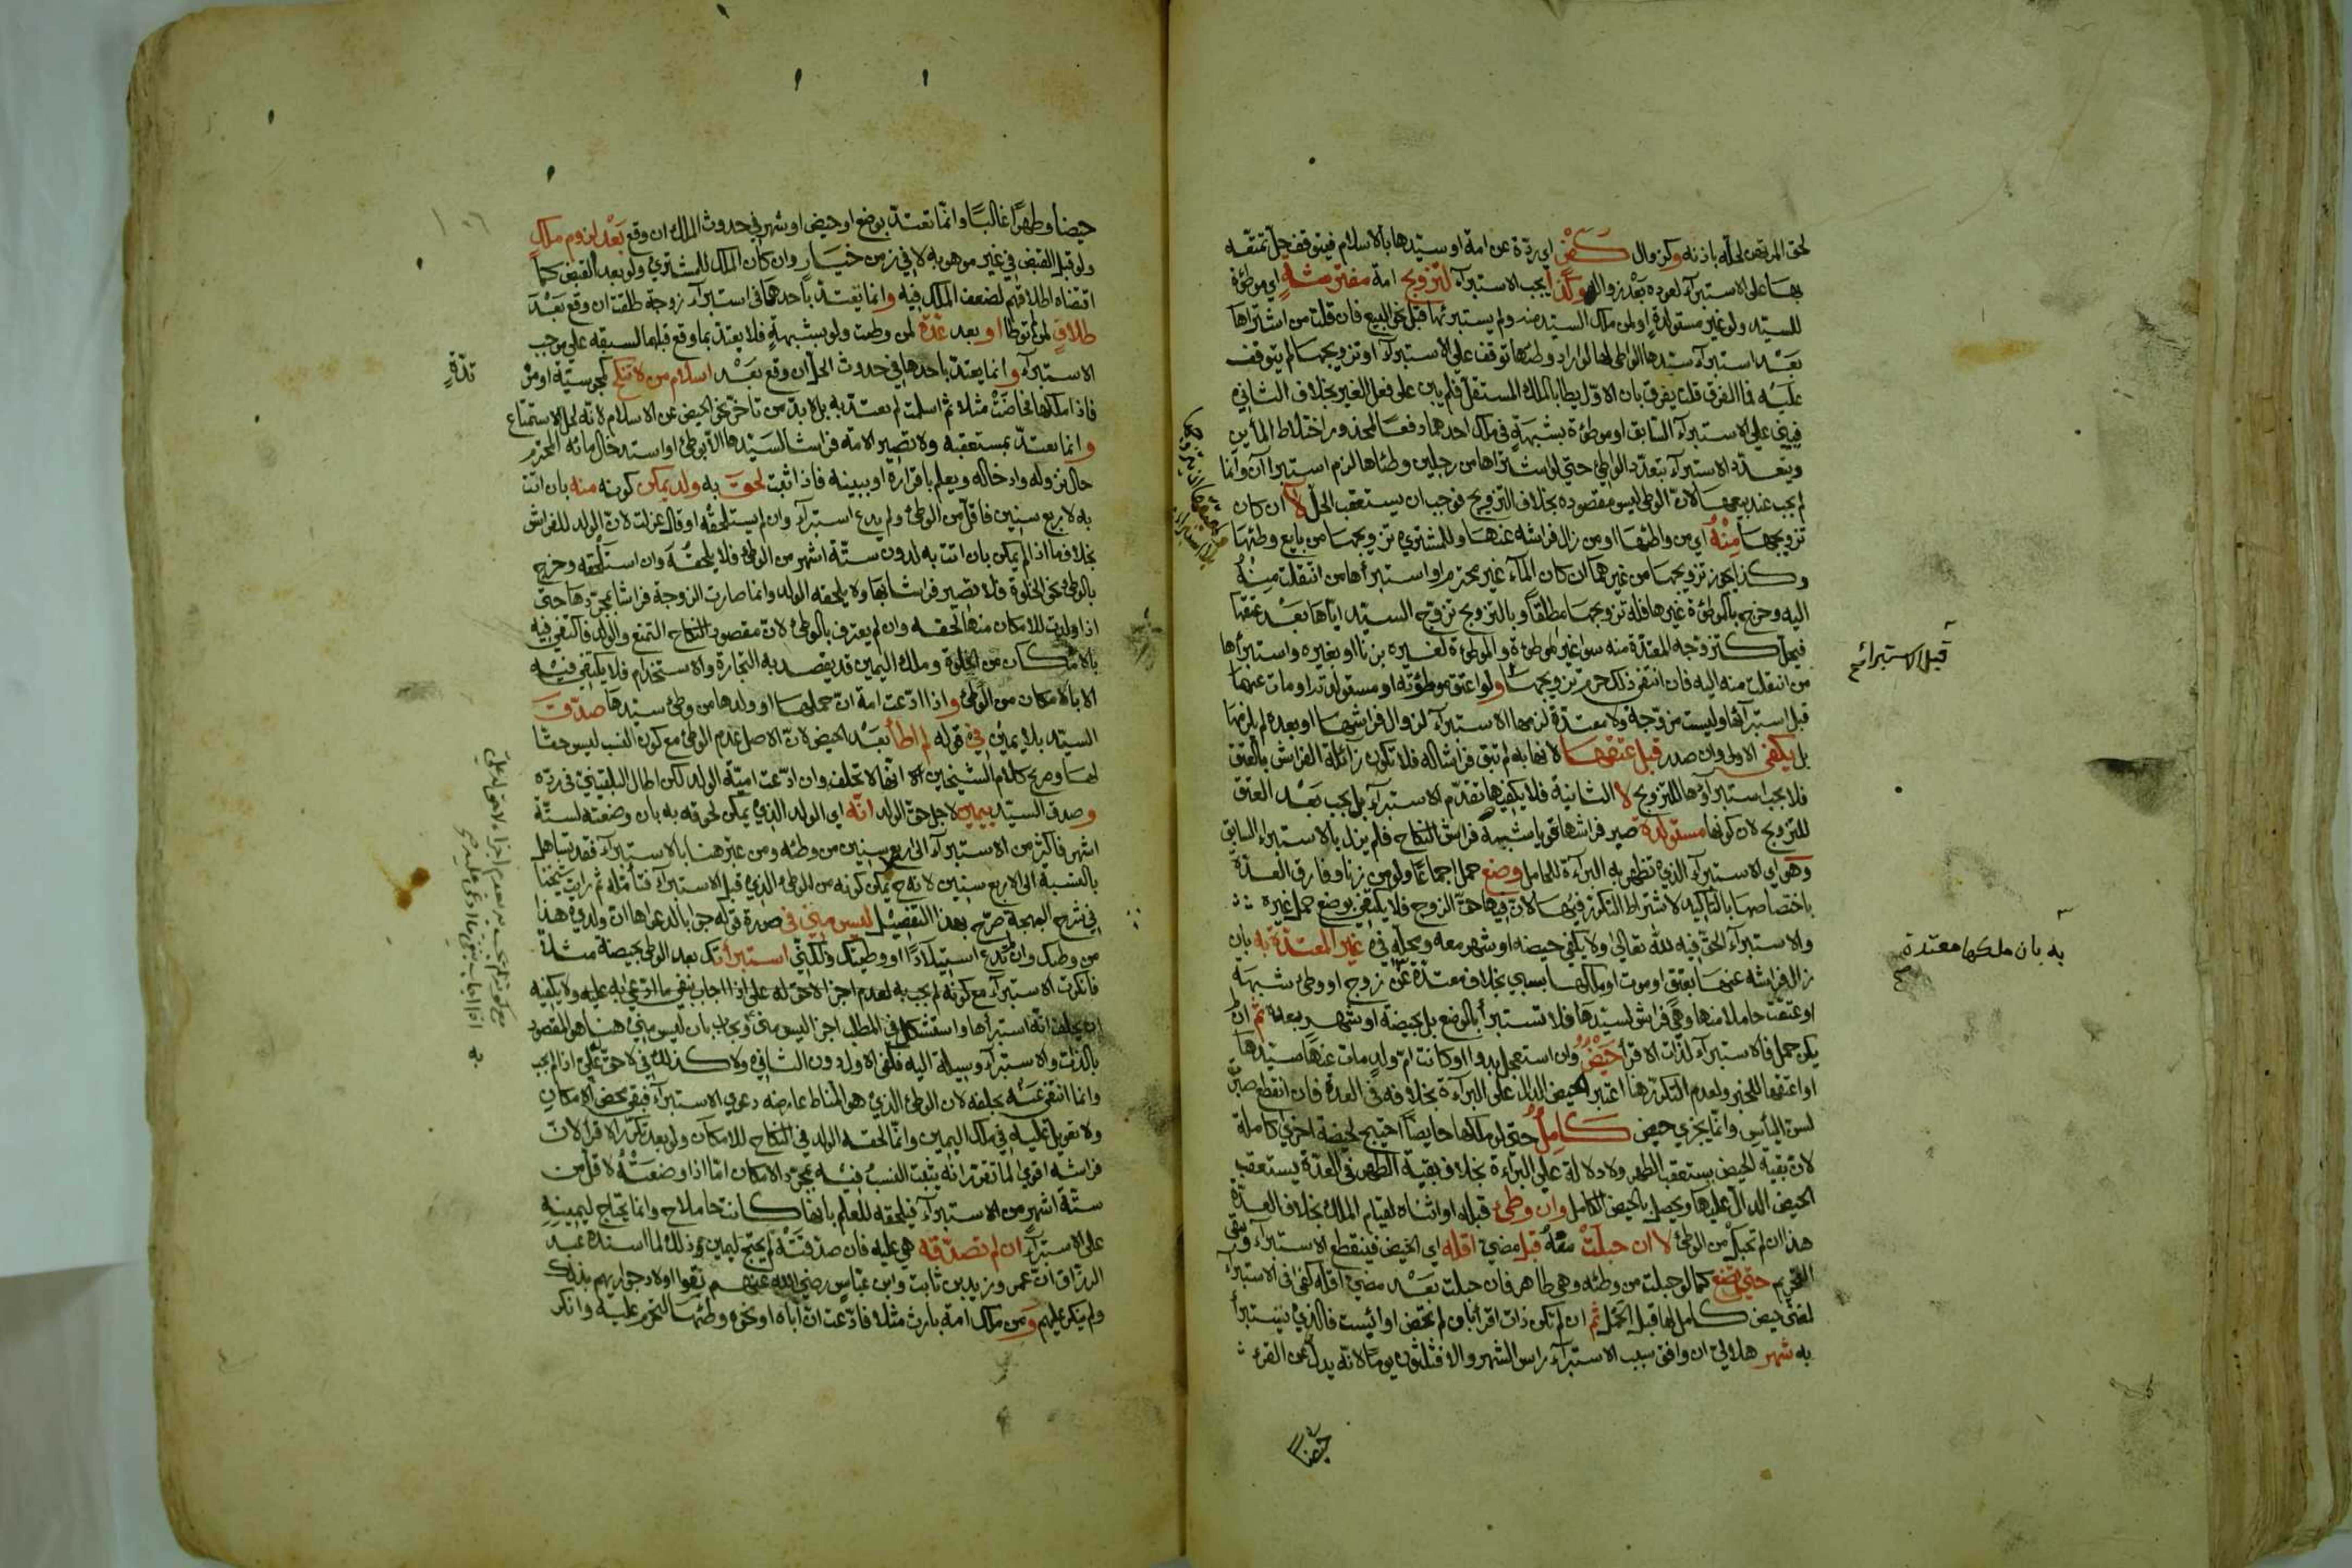 لحق المرتهن لحله باذنه وكزوال كفر اي ردة عن امة او سيدها بالاسلام فيتوقف حل تمتعه
بها على الاستبرآء لعوده بعد زواله وكذا يجب الاستبرآء لتزويج امة مفترشة اي موطؤة
للسيد ولو غير مستولدة او لمن ملك السيد منه ولم يستبرئها قبل نحو البيع فان قلت من اشتراها
بعد استبرآء سيدها الواطي لها لو اراد وطئها توقف علي الاستبرآء او تزويجها لم يتوقف
عليه فما الفرق قلت يفرق بان الاول يطا بالملك المستقل فلم يبن على فعل الغير بخلاف الثاني
فيبني علي الاستبرآء السابق او موطؤة بشبهة في ملك احدهما دفعًا لمحذور اختلاط المأين
ويتعدد الاستبرآء بتعدد الواطئ حتي لو اشتراها من رجلين وطئاها لزم استبراآن وانما
لم يجب عند بيعها لان الوطئ ليس مقصوده بخلاف التزويج فوجب ان يستعقب الحل لا ان كان
تزويجها منه اي من واطئها او من زال فراشه عنها وللمشتري تزويجها من بايع وطئها
وكذا يجوز تزويجها من غيرهما ان كان المآء غير محترم او استبرأها من انتقلت منه
اليه وخرج بالموطؤة غيرها فله تزويجها مطلقًا وبالتزويج تزوج السيد اياها بعد عتقها
فيحل كتزوجه للمعتدة منه سوا غير الموطؤة والموطؤة لغيره بزنا او بغيره واستبرأها
من انتقلت منه اليه فان انتفى ذلك حرم تزويجها ولو اعتق موطؤته او مستولدته او مات عنها
قبل استبرائها وليست مزوجة ولا معتدة لزمها الاستبرآء لزوال فراشها او بعده لم يلزمها
بل يكفي الاولى وان صدر قبل عتقها لانها به لم تبق فراشا له فلا تكون زائلة الفراش بالعتق
فلا يجب استبرآؤها للتزويج لا الثانية فلا يكفيها تقدم الاستبرآء بل يجب بعد العتق
للتزويج لان كونها مستولدة صير فراشها قويا شبيها بفراش النكاح فلم يزل بالاستبراء السابق
وهو اي الاستبرآء الذي تظهر به البرآءة للحامل وضع حمل اجماعًا ولو من زنا وفارق العدة
باختصاصها بالتاكيد لاشتراط التكرر فيها لان فيها حق الزوج فلا يكتفى بوضع حمل غيره
والاستبرآء الحق فيه لله تعالى ولا يكفي حيضه او شهر معه ومحله في غير المعتدة به بان
زال فراشه عنها بعتق او موت او ملكها بسبي بخلاف معتدة عن زوج او وطئ شبهة
او عتقت حاملا منها وهي فراش لسيدها فلا تستبرأ بالوضع بل بحيضة او شهر بعده ثم ان لم
يكن حمل فالاستبرآء لذات الاقرآ حيض وان استعجل بدوا او كانت ام ولد مات عنها سيدها
او اعتقها للخبر ولعدم التكرر هنا اعتبر الحيض الدال على البرآءة بخلافه في العدة فان انقطع صبرت
لسن الياس وانما يجزي حيض كامل حتى لو ملكها حايضًا احتيج لحيضة اخري كاملة
لان بقية الحيض يستعقب الطهر ولا دلالة على البراءة بخلاف بقية الطهر في العدة يستعقب
الحيض الدال عليها ويحصل بالحيض الكامل وان وطئ قبله او اثناه لقيام الملك بخلاف العدة
هذا ان لم تحبل من الوطئ لا ان حبلت معه قبل مضي اقله اي الحيض فينقطع الاستبرآء ويبقى
التحريم حتي تضع كما لو حبلت من وطئه وهي طاهر فان حبلت بعد مضي اقله كفى في الاستبرآء
لمضي حيض كامل لها قبل الحمل ثم ان لم تكن ذات اقرآ بان لم تحض او ائيست فالذي تستبرأ
به شهر هلالي ان وافق سبب الاستبرآء راس الشهر والا فثلثون يوما لانه يدل عن القرء
حيضا
قبل الاستبراء صح
به بان ملكها معتدة صح
حيضا وطهرًا غالبًا وانما تعتد بوضع او حيض او شهر في حدوث الملك ان وقع بعد لزوم ملك
ولو قبل القبض في غير موهوبه لا في زمن خيار وان كان الملك للمشتري ولو بعد القبض كما
اقتضاه اطلاقهم لضعف الملك فيه وانما يعتد باحدهما في استبرآء زوجة طلقت ان وقع بعد
طلاق لمن لم توطا او بعد عدة لمن وطئت ولو بشبهة فلا يعتد بما وقع قبلها لسبقه علي موجب
الاستبرآء وانما يعتد باحدها في حدوث الحل ان وقع بعد اسلام من لا تنكح كمجوسية او مر
تدة
فاذا ملكها فحاضت مثلا ثم اسلمت لم يعتد به بل لا بد من تاخر نحو الحيض عن الاسلام لانه لحل الاستمتاع
وانما يعتد بمستعقبه ولا تصير الامة فراشا لسيدها الا بوطئ او استدخال مائه المحترم
حال نزوله وادخاله ويعلم باقراره او ببينه فاذا ثبت لحق به ولد يمكن كونه منه بان اتت
به لاربع سنين فاقل من الوطئ ولم يدع استبرآء وان لم يستلحقه او قال عزلت لان الولد للفراش
بخلاف ما اذا لم يمكن بان اتت به لدون ستة اشهر من الوطئ فلا يلحقه وان استلحقه وخرج
بالوطئ نحو الخلوة فلا تصير فراشا بها ولا يلحقه الولد وانما صارت الزوجة فراشا بمجردها حتى
اذا ولدت للامكان منها لحقه وان لم يعترف بالوطئ لان مقصود النكاح التمتع والولد فاكتفي فيه
بالامكان من الخلوة وملك اليمين قد يقصد به التجارة والاستخدام فلا يكتفي فيه
الا بالامكان من الوطئ واذا ادعت امة ان حملها او ولدها من وطئ سيدها صدق
السيد بلا يمين في قوله لم اطأ بعد الحيض لان الاصل عدم الوطئ مع كون النسب ليس حقا
لها وصرح كلام الشيخين الا انها لا تحلف وان ادعت امية الولد لكن اطال البلقيني في رده
وصدق السيد بيمين لاجل حق الولد انه اي الولد الذي يمكن لحوقه به بان وضعته لستة
اشهر فاكثر من الاستبرآء الى اربع سنين من وطئه ومن عبر هنا بالاستبرآء فقد تساهل
بالنسبة الى الاربع سنين لانه ح يمكن كونه من الوطئ الذي قبل الاستبرآء فتامله ثم رايت شيخنا
في شرح البهجة صرح بهذا التفصيل ليس مني في صورة قوله جوابا لدعواها ان ولدي هذا
من وطئك وان لم تدع استيلادًا او وطيتك ولكني استبرأتك بعد الوطئ بحيضة مثلا
فانكرت الاستبرآء مع كونه لم يجب به لعدم اجزا لاحق له على اذا اجاب بنفي ما ادعي به عليه ولا يكفيه
ان يحلف انه استبرأها واستشكل في المطلب اجزا ليس مني ويجاب بان ليس مني هنا هو المقصود
بالذات والاستبرآء وسيلة اليه فكفى الاول دون الثاني ولا كذلك في لا حق علي اذا لم يجب
وانما انتفى عنه بحلفه لان الوطئ الذي هو المناط عارضه دعوي الاستبرآء فبقي محض الامكان
ولا تعويل عليه في ملك اليمين وانما لحقه الولد في النكاح للامكان ولو بعد تكرر الاقرآ لان
فراشه اقوي لما تقرر انه يثبت النسب فيه بمجرد الامكان اما اذا وضعته لاقل من
ستة اشهر من الاستبرآء فيلحقه للعلم بانها كانت حاملا ح وانما يحتاج ليمينه
على الاستبرآء ان لم تصدقه هي عليه فان صدقته لم يحتج ليمين وذلك لما اسنده عبد
الرزاق ان عمر وزيد بن ثابت وابن عباس رضي الله عنهم نفوا اولاد جواريهم بذلك
ولم ينكر عليهم ومن ملك امة بارث مثلا فادعت ان اباه او نحوه وطئها لتحرم عليه وانكر